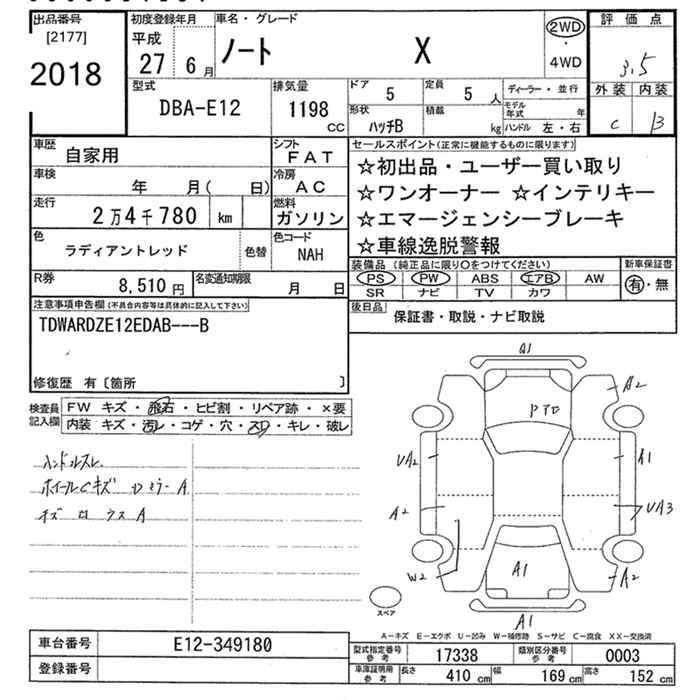 出品番号
[2177]
2018
初度登録年月
平成
27 6月
車名・グレード
ノート X
2WD
・
4WD
評価点
3.5
外装 内装
C B
型式
DBA-E12
排気量
1198
CC
ドア 5
定員 5人
形状 ハッチB
積載 kg
ディーラー・並行
モデル年式 年
ハンドル 左・右
車歴 自家用
シフト FAT
車検 年 月( 日)
冷房 AC
走行 2万4千780 km
燃料 ガソリン
色 ラディアントレッド 色替
色コード NAH
R券 8,510円
名変通知期限 月 日
セールスポイント(正常に機能するものに限ります)
☆初出品・ユーザー買い取り
☆ワンオーナー ☆インテリキー
☆エマージェンシーブレーキ
☆車線逸脱警報
装備品(純正品に限り○をつけてください) 新車保証書
PS PW ABS エアB AW 有・無
SR ナビ TV カワ
後日品 保証書・取説・ナビ取説
注意事項申告欄(不具合内容等は具体的に記入して下さい)
TDWARDZE12EDAB---B
修復歴 有〔箇所 〕
検査員記入欄
FW キズ・飛石・ヒビ割・リペア跡・×要
内装 キズ・汚レ・コゲ・穴・スリ・キレ・破レ
ハンドルスレ
ホイールCキズ Dミラー A
A1
A2
UA2 A1
A2 UA3
W2 A1 A2
スペア
A1
A－キズ E－エクボ U－凹み W－補修跡 S－サビ C－腐食 XX－交換済
車台番号 E12-349180
登録番号
型式指定番号参考 17338 類別区分番号参考 0003
車庫証明用参考 長さ 410cm 幅 169cm 高さ 152cm